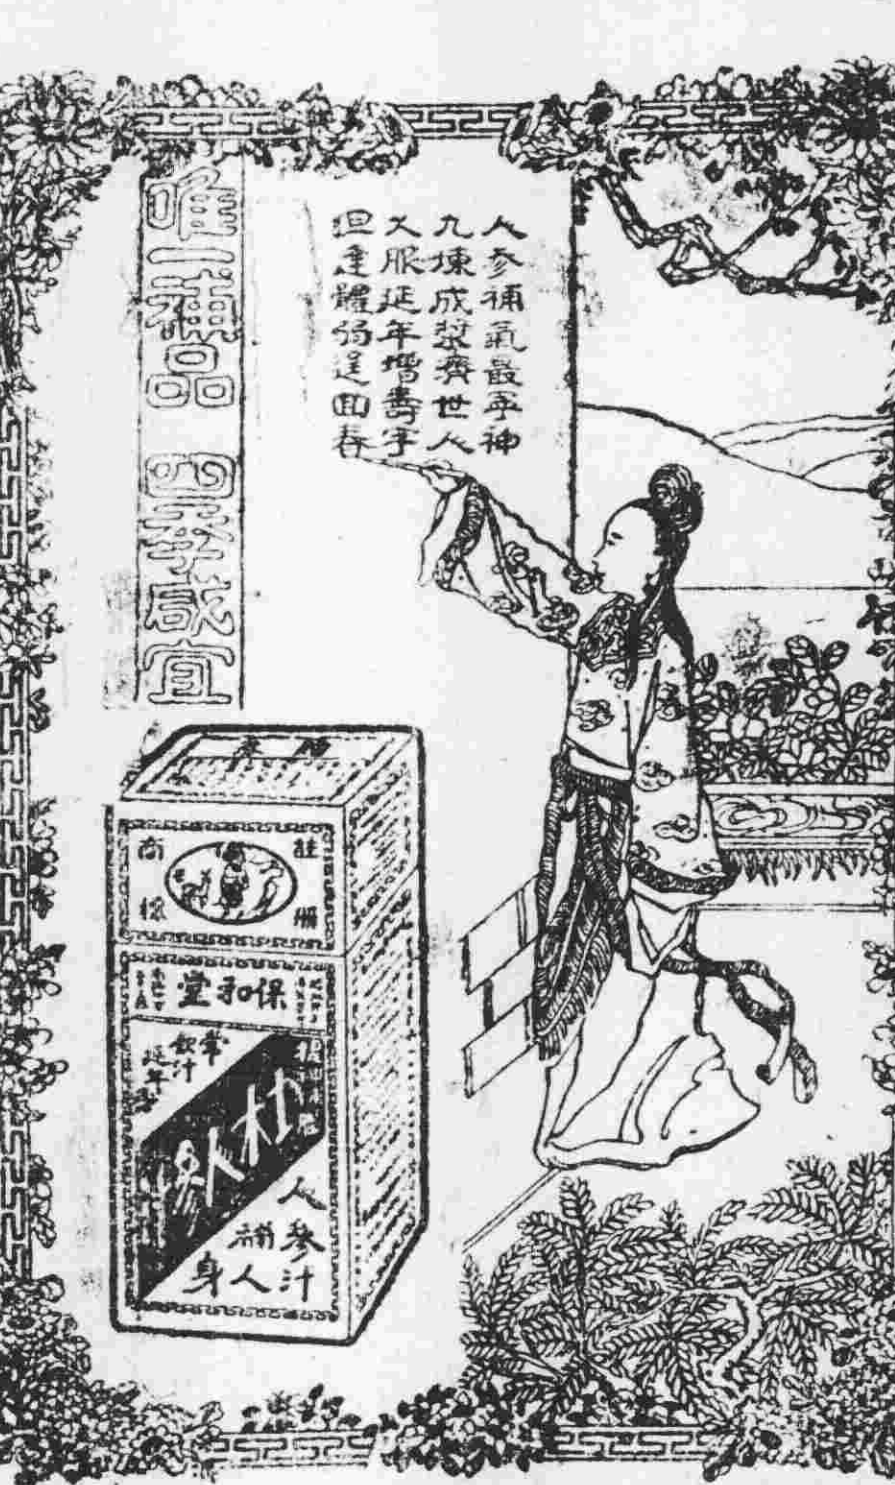 人参補氣最神
九煉成漿世人
久服延年增壽
但逢體弱回春
唯一補品 四季咸宜
註冊
商標
保和堂
常
飲汁
延年
人參
人參汁
補人身